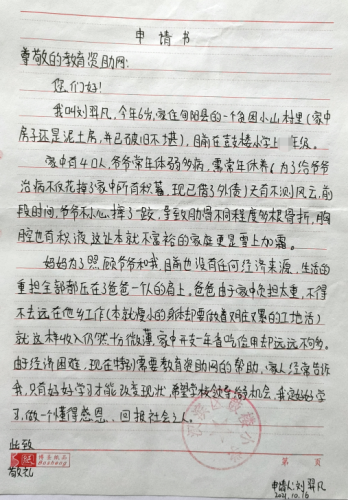 申请书
尊敬的教育资助网:
您们好!
我叫刘羿凡,今年6岁,家住旬阳县的一个贫困小山村里(家中
房子还是泥土房,并已破旧不堪),目前在吉家楼小学上 年级。
家中有4口人,爷爷常年体弱多病,需常年休养,为了给爷爷
治病不仅花掉了家中所有积蓄,现已借了外债,天有不测风云,前
段时间,爷爷不小心摔了一跤,导致肋骨不同程度的根骨折,胸
腔也有积液,这让本就不富裕的家庭更是雪上加霜。
妈妈为了照顾爷爷和我,目前也没有任何经济来源,生活的
重担全部都压在了爸爸一个人的肩上。爸爸由于家中负担太重,不得
不去远在他乡工作(本就瘦小的身体却要做着又脏又累的工地活)
就这样收入仍然十分微薄,家中开支一年省吃俭用却远远不够。
由于经济困难,现在特别需要教育资助网的帮助,家人经常告诉
我,只有好好学习才能改变现状,希望学校领导给机会,我定好好学
习,做一个懂得感恩、回报社会之人。
此致
敬礼
博袅纸品
Bosheng
第 页
申请人:刘羿凡
2021.10.16